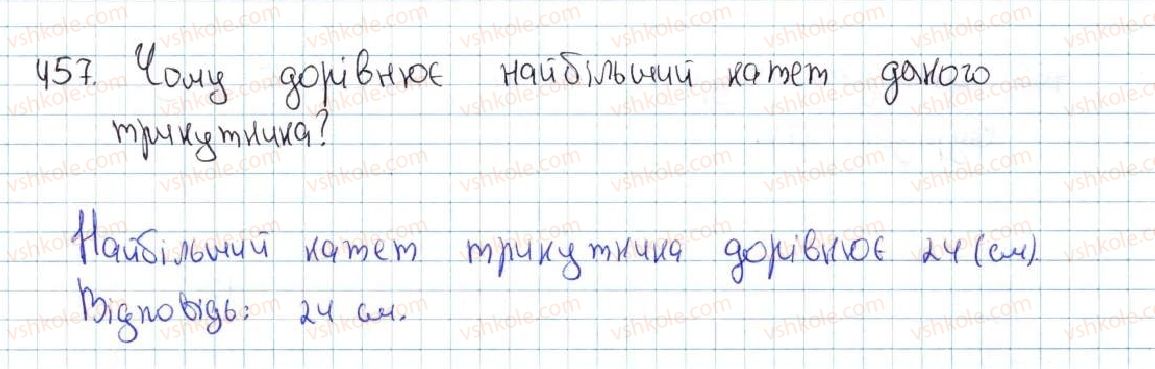 457. Чому дорівнює найбільший катет даного
трикутника?
Найбільший катет трикутника дорівнює 24 (см).
Відповідь: 24 см.